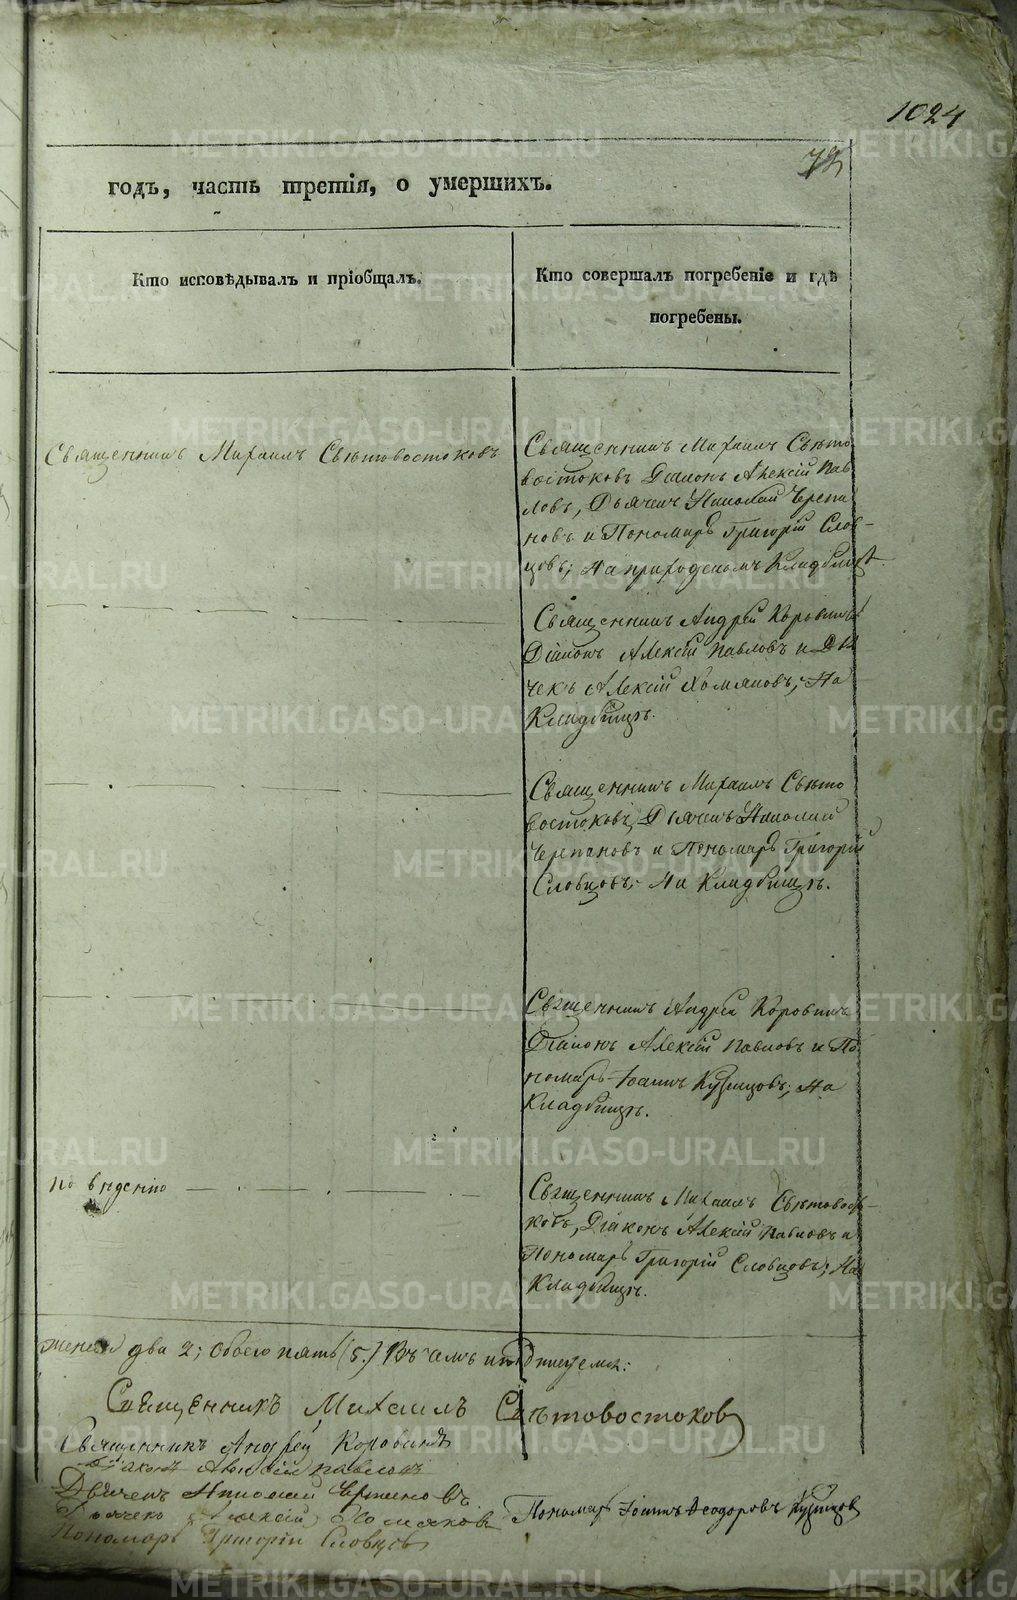 1024
72
годъ, часть третія, о умершихъ.
Кто исповѣдывалъ и пріобщалъ.
Кто совершалъ погребеніе и гдѣ
погребены.
Священникъ Михаилъ Свѣтовостоковъ
Священникъ Михаилъ Свѣто
востоковъ Діаконъ Алексій Пав
ловъ, Дьячекъ Николай Черепа
новъ и Пономарь Григорій Слов-
цовъ; На приходскомъ Кладбищѣ.
Священникъ Андрей Коровинъ
Діаконъ Алексій Павловъ и Дья
чекъ Алексій Хомяковъ; На
Кладбищѣ.
Священникъ Михаилъ Свѣто
востоковъ, Дьячекъ Николай
Черепановъ и Пономарь Григорій
Словцовъ; На Кладбищѣ.
Священникъ Андрей Коровинъ
Діаконъ Алексій Павловъ и По
номарь Іоаннъ Кузнецовъ; На
Кладбищѣ.
По
Священникъ Михаилъ Свѣтовосто-
ковъ, Діаконъ Алексій Павловъ и
Пономарь Григорій Словцовъ; На
Кладбищѣ.
женска два 2; Обоего пять (5.) Въ чемъ и подписуемся:
Священникъ Михаилъ Свѣтовостоковъ
Священникъ Андрей Коровинъ
Діаконъ Алексій Павловъ
Дьячекъ Николай Черепановъ
Дьячекъ Алексій Хомяковъ
Пономарь Іоаннъ Ѳеодоровъ Кузнецов
Пономарь Григорій Словцовъ
METRIKI.GASO-URAL.RU